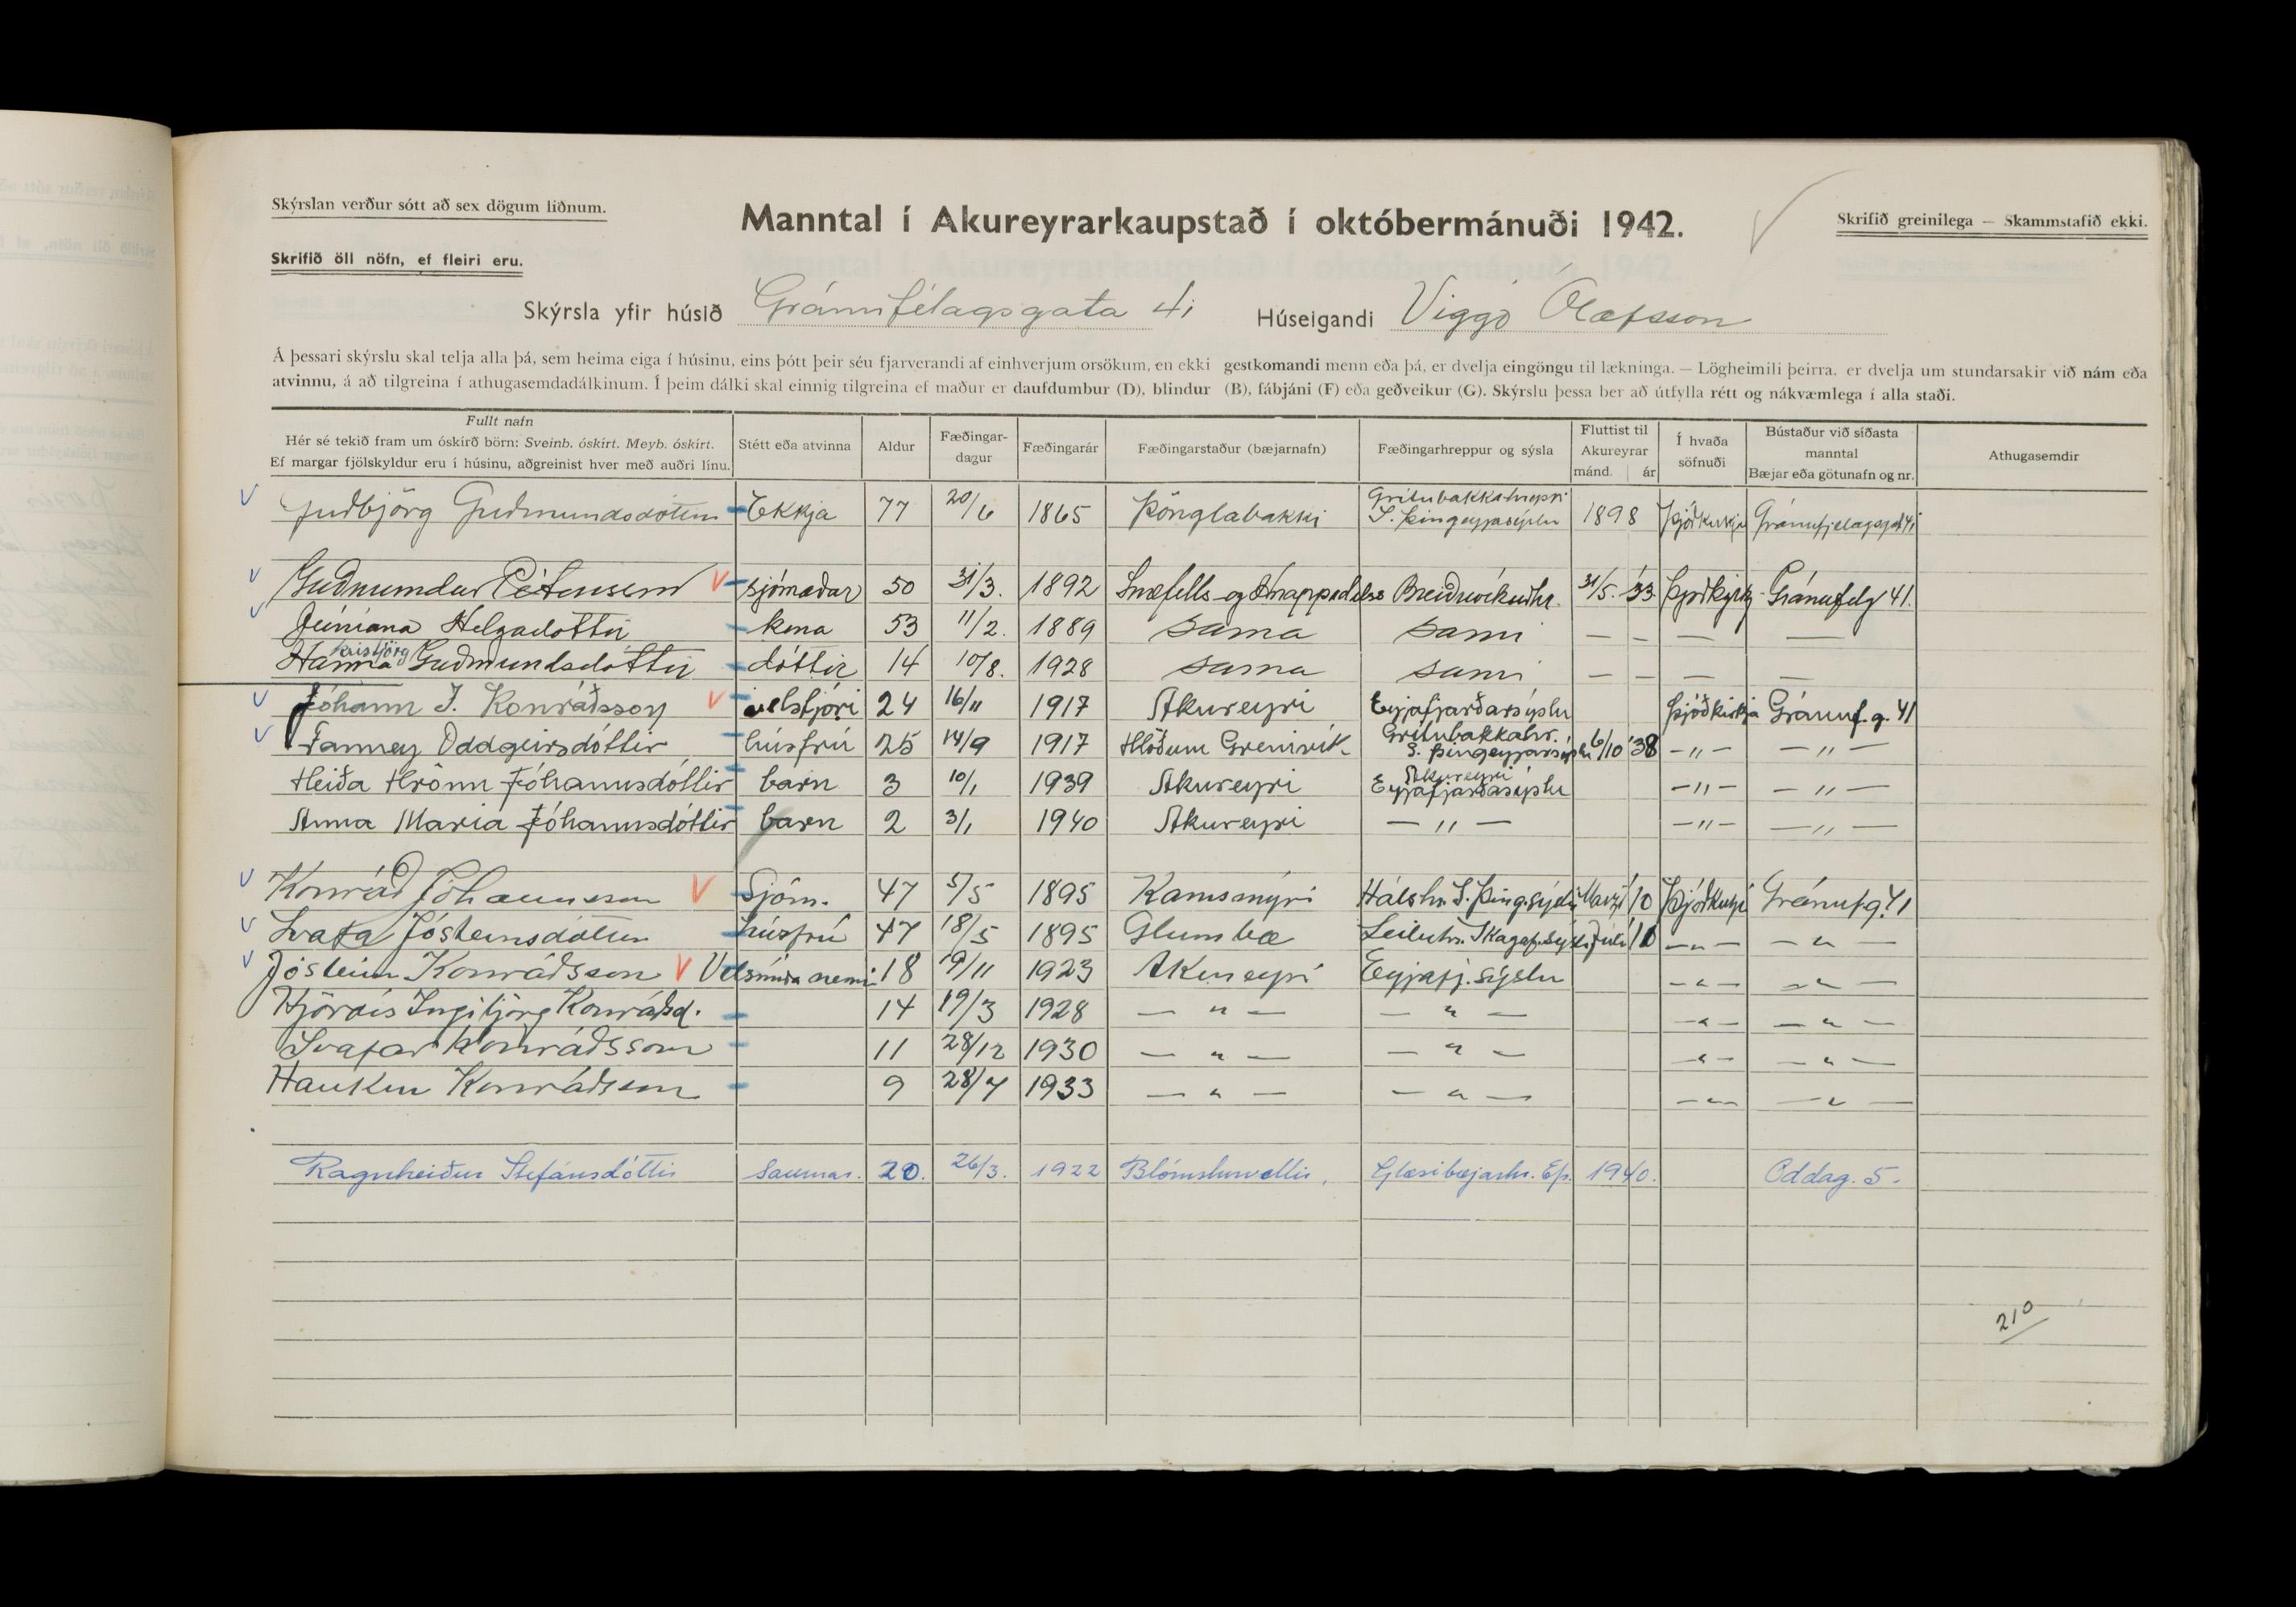 Skýrslan verður sótt að sex dögum liðnum.
Manntal í Akureyrarkaupstað í októbermánuði 1942.
Skrifið greinilega — Skammstafið ekki.
Skrifið öll nöfn, ef fleiri eru.
Skýrsla yfir húsið Gránufélagsgata 41 Húseigandi Viggó Ólafsson
Á þessari skýrslu skal telja alla þá, sem heima eiga í húsinu, eins þótt þeir séu fjarverandi af einhverjum orsökum, en ekki gestkomandi menn eða þá, er dvelja eingöngu til lækninga. — Lögheimili þeirra, er dvelja um stundarsakir við nám eða
atvinnu, á að tilgreina í athugasemdadálkinum. Í þeim dálki skal einnig tilgreina ef maður er daufdumbur (D), blindur (B), fábjáni (F) eða geðveikur (G). Skýrslu þessa ber að útfylla rétt og nákvæmlega í alla staði.
Fullt nafn
Hér sé tekið fram um óskírð börn: Sveinb. óskírt. Meyb. óskírt.
Ef margar fjölskyldur eru í húsinu, aðgreinist hver með auðri línu.
Stétt eða atvinna
Aldur
Fæðingar-
dagur
Fæðingarár
Fæðingarstaður (bæjarnafn)
Fæðingarhreppur og sýsla
Fluttist til
Akureyrar
mánd. ár
Í hvaða
söfnuði
Bústaður við síðasta
manntal
Bæjar eða götunafn og nr.
Athugasemdir
Guðbjörg Guðmundsdóttir Ekkja 77 20/6 1865 Þönglabakki Grítubakkahreppi S. Þingeyjasýslu 1898 Þjóðkirkja Gránufjelagsgt 41
Guðmundur Pétursson sjómaður 50 31/3. 1892 Snæfells- og Hnappadalss Breiðuvíkurhr. 31/5. '33. Þjóðkirkj Gránufélg 41.
Júníana Helgadóttir kona 53 11/2. 1889 sama sami — — — —
Hanna Kristjörg Guðmundsdóttir dóttir 14 10/8. 1928 sama sami — — — —
Jóhann J. Konráðsson 24 16/11 1917 Akureyri Eyjafjarðarsýslu Þjóðkirkja Gránuf.g. 41
Fanney Oddgeirsdóttir húsfrú 25 14/9 1917 Hlöðum Grenivík Grítubakkahr. S. Þingeyjarsýslu 6/10 '38 —"— —"—
Heiða Hrönn Jóhannsdóttir barn 3 10/1 1939 Akureyri Akureyri Eyjafjarðasýslu —"— —"—
Anna María Jóhannsdóttir barn 2 3/1 1940 Akureyri —"— —"— —"—
Konráð Jóhannsson Sjóm. 47 5/5 1895 Kamsmýri Hálshr. S. Þing.sýslu 10 Þjóðkirkja Gránuf.g. 41
Svafa Jósteinsdóttir húsfrú 47 18/5 1895 Glumbæ Seiluhr. Skagaf.sýsl. Júlí 10 —"— —"—
Jósteinn Konráðsson Vélsmíða nemi 18 19/11 1923 Akureyri Eyjafj. sýslu —"— —"—
Hjördís Ingibjörg Konráðsd. 14 19/3 1928 —"— —"— —"— —"—
Svafar Konráðsson 11 28/12 1930 —"— —"— —"— —"—
Haukur Konráðsson 9 28/7 1933 —"— —"— —"— —"—
Ragnheiður Stefánsdóttir saumar. 20. 26/3. 1922 Blómsturvellir, Glæsibæjarhr. Ef. 1940. Oddag. 5.
210